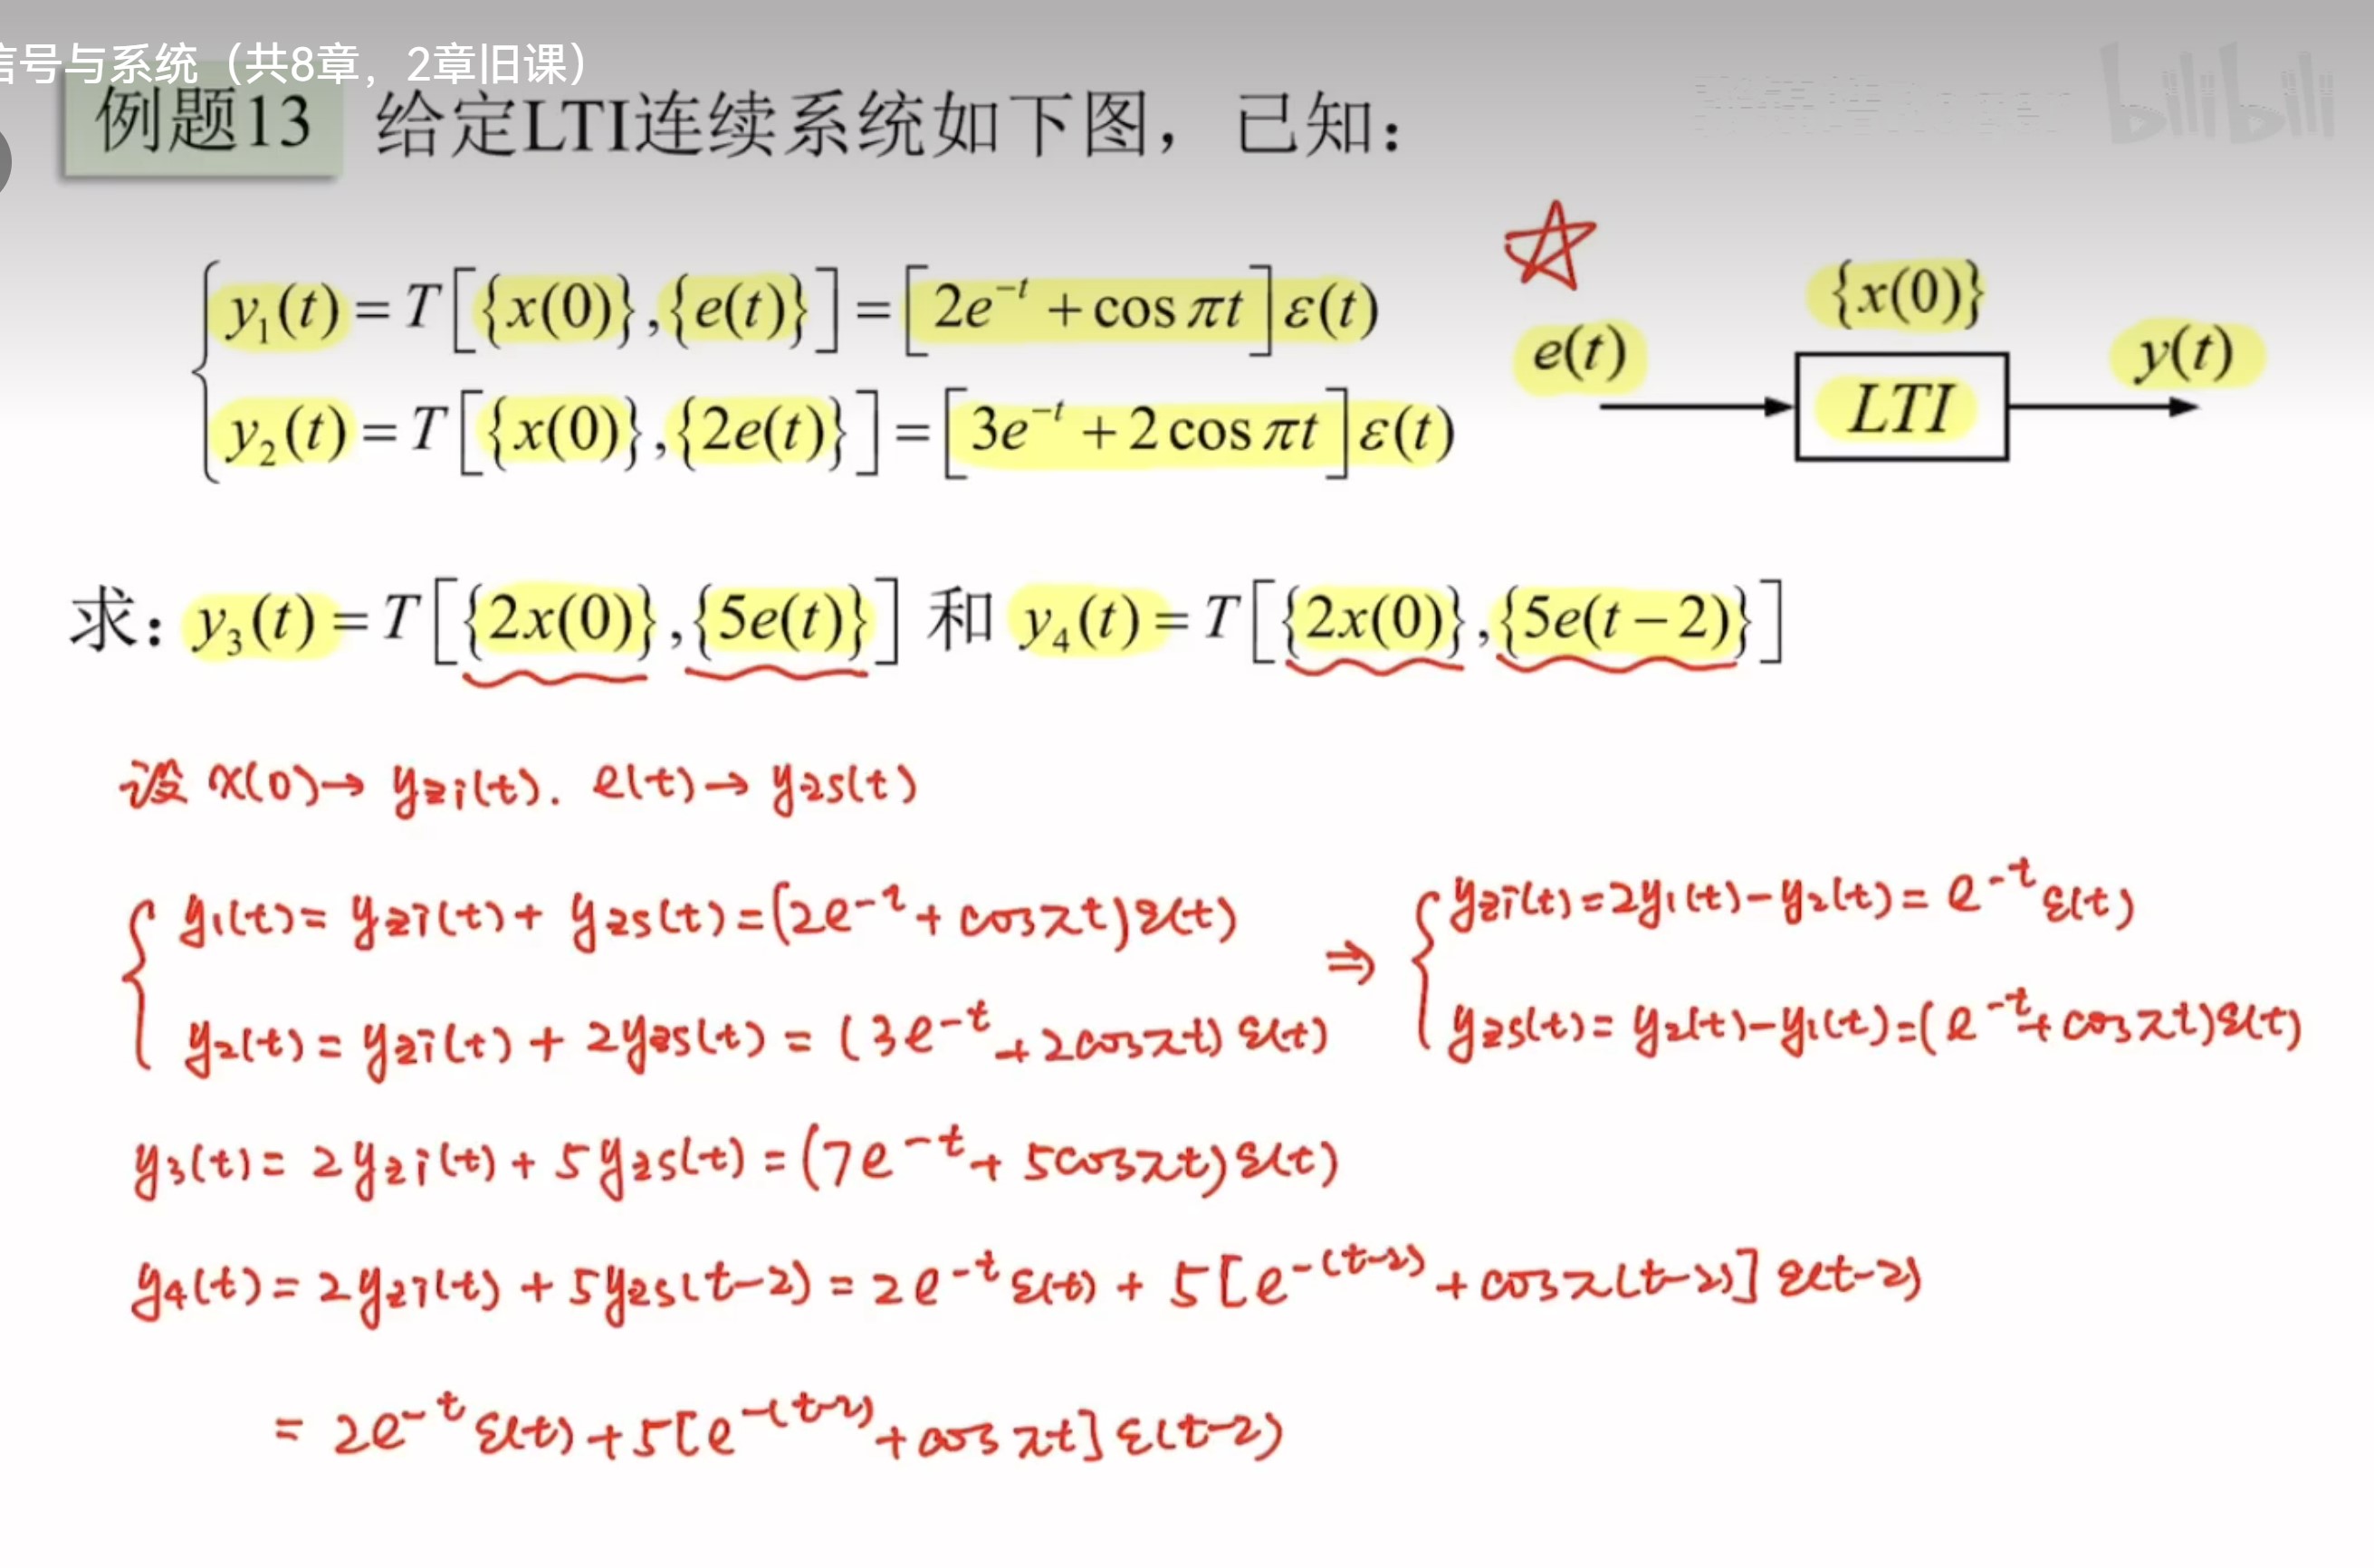 信号与系统（共8章，2章旧课）
bilibili
例题13 给定LTI连续系统如下图，已知：
y₁(t) = T[{x(0)},{e(t)}] = [2e^{-t} + cos πt]ε(t)
y₂(t) = T[{x(0)},{2e(t)}] = [3e^{-t} + 2cos πt]ε(t)
{x(0)}
e(t) LTI y(t)
求：y₃(t) = T[{2x(0)},{5e(t)}] 和 y₄(t) = T[{2x(0)},{5e(t−2)}]
设 x(0)→ yzi(t). e(t)→ yzs(t)
y₁(t) = yzi(t) + yzs(t) = (2e^{-t} + cosπt)ε(t)
y₂(t) = yzi(t) + 2yzs(t) = (3e^{-t} + 2cosπt)ε(t)
⇒
yzi(t) = 2y₁(t) − y₂(t) = e^{-t}ε(t)
yzs(t) = y₂(t) − y₁(t) = (e^{-t} + cosπt)ε(t)
y₃(t) = 2yzi(t) + 5yzs(t) = (7e^{-t} + 5cosπt)ε(t)
y₄(t) = 2yzi(t) + 5yzs(t−2) = 2e^{-t}ε(t) + 5[e^{-(t-2)} + cosπ(t−2)]ε(t−2)
= 2e^{-t}ε(t) + 5[e^{-(t-2)} + cosπt]ε(t−2)